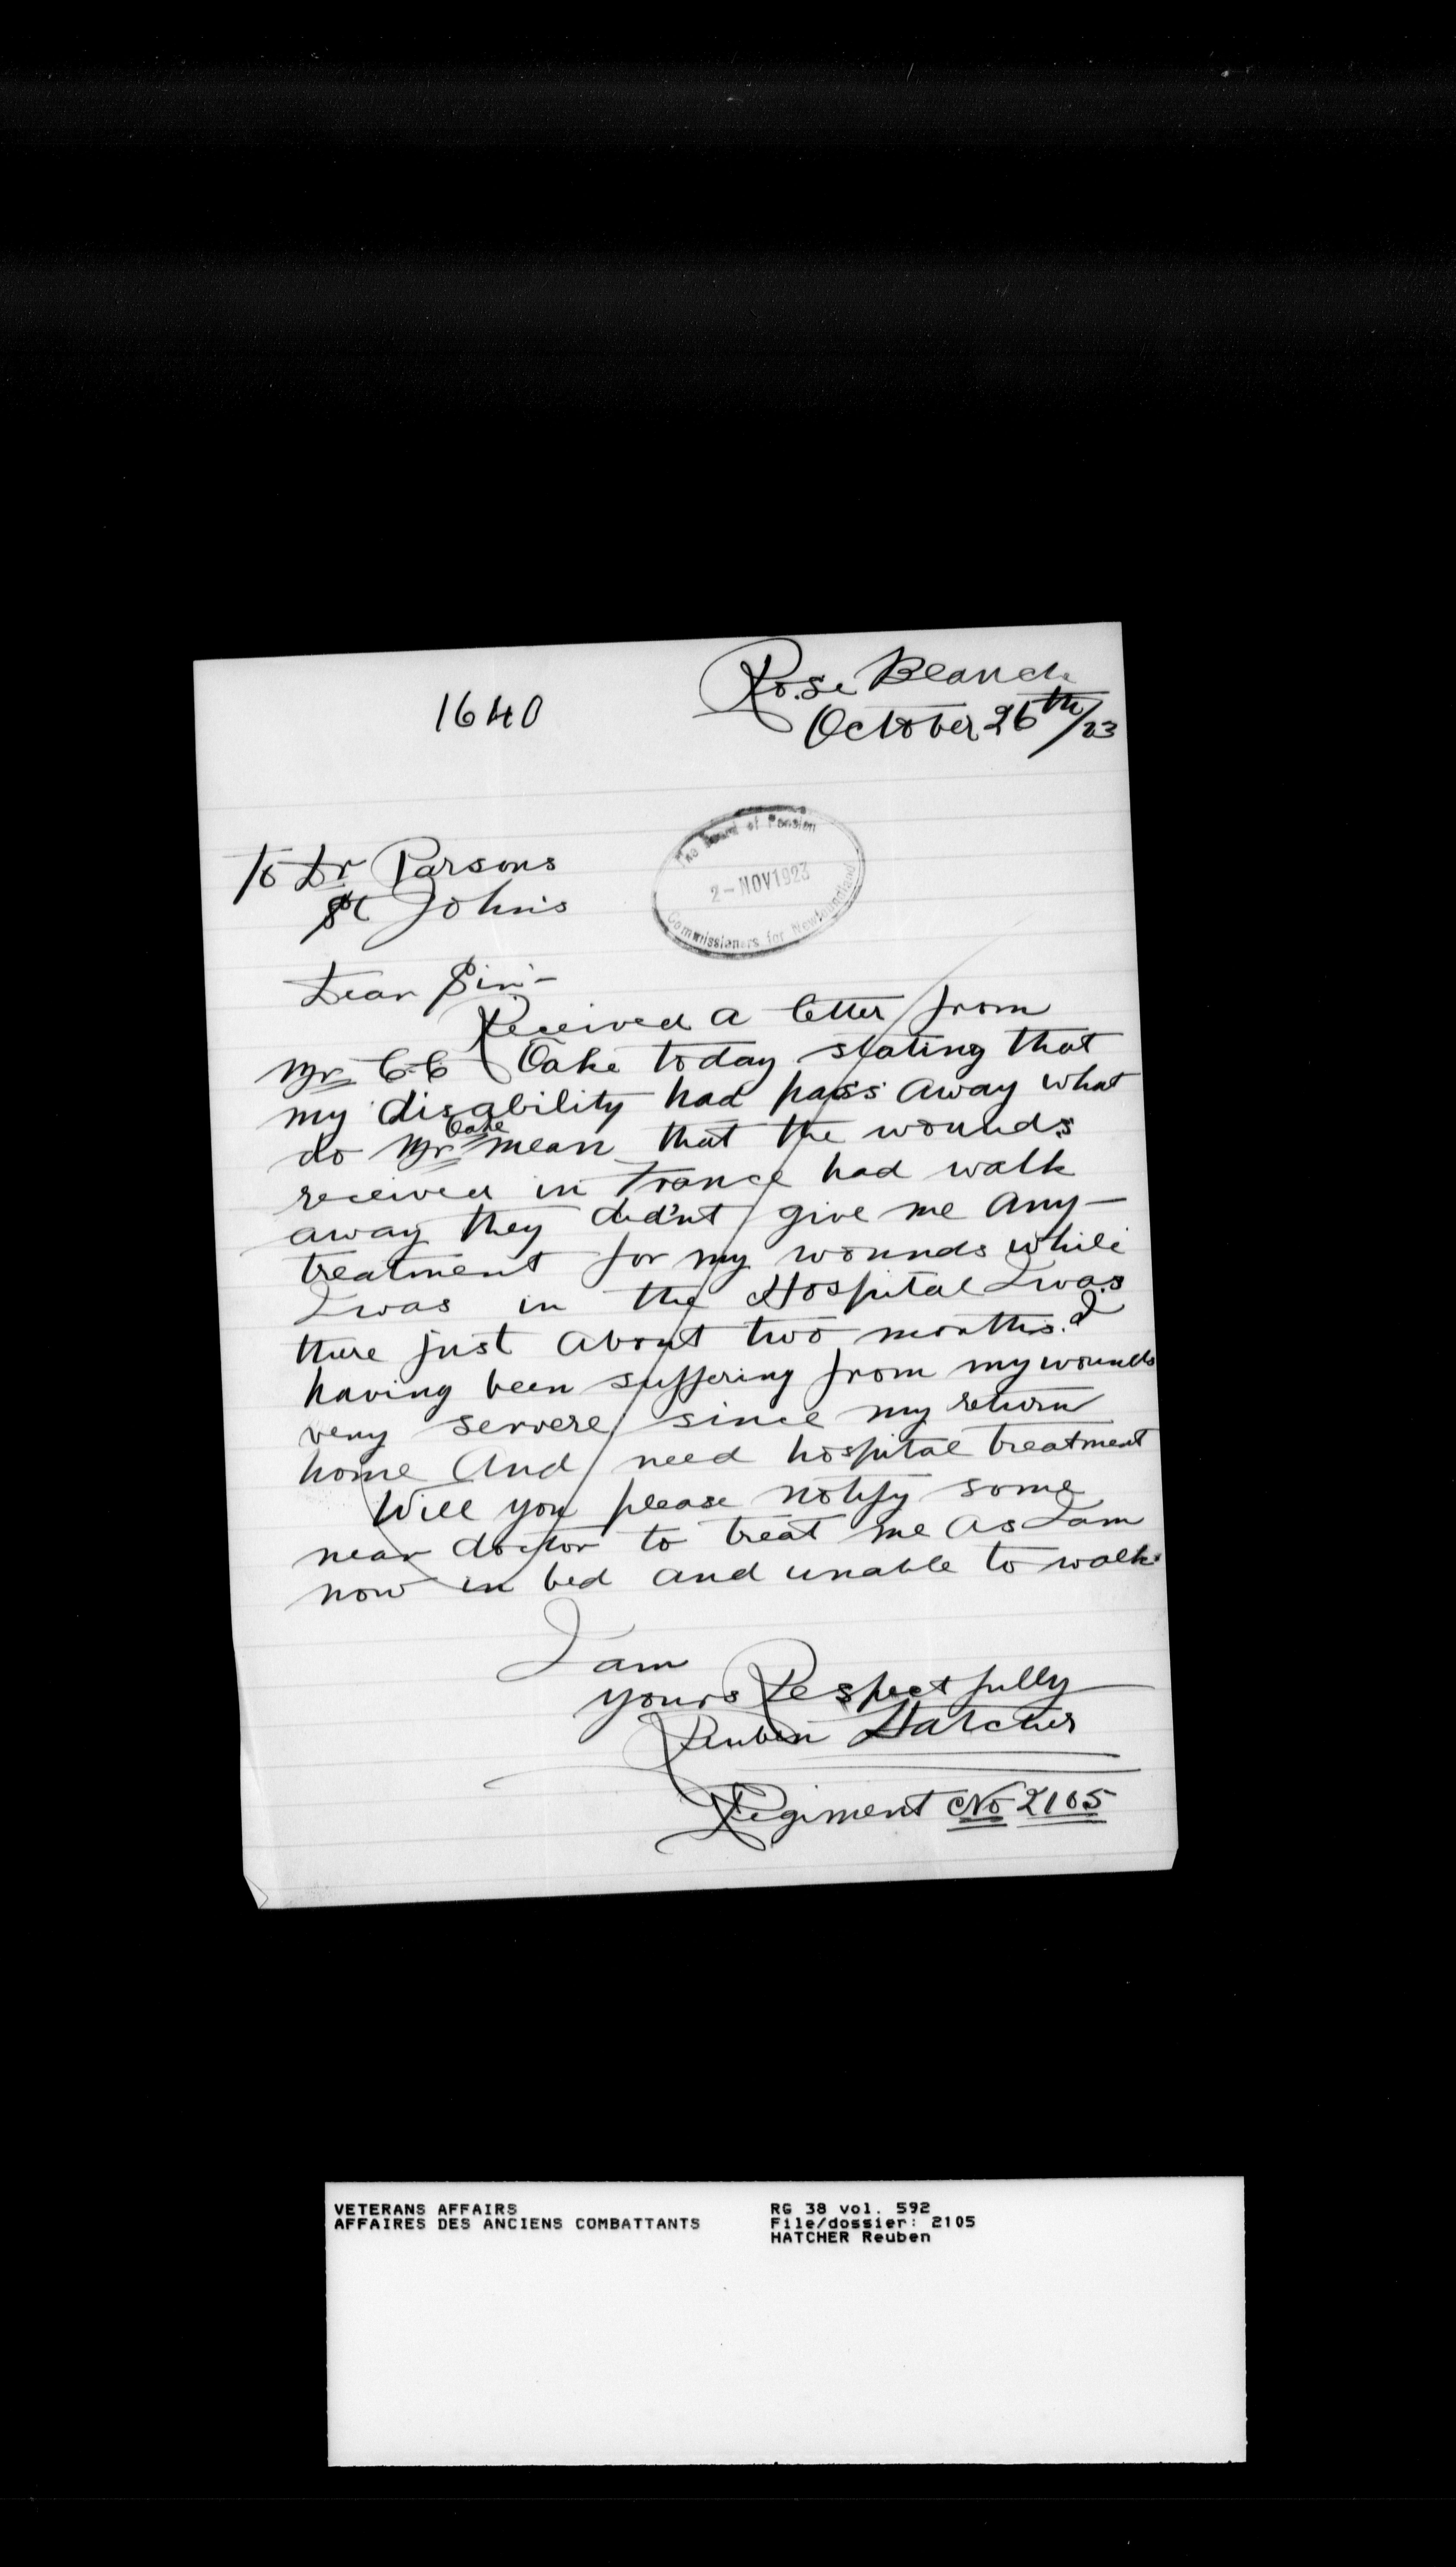 Rose Blanch
1640
October 26th/23
The Board of Pension
2-NOV 1923
Commissioners for Newfoundland
To Dr Parsons
St John's
Dear Sir:-
Received a letter from
Mr C.C Oake today stating that
my disability had pass away what
do Mr Oake mean that the wounds
received in France had walk
away they did'nt give me any-
treatment for my wounds while
I was in the Hospital I was
there just about two months. I
having been suffering from my wounds
very servere since my return
home And need hospital treatment
Will you please notify some
near doctor to treat me as I am
now in bed and unable to walk.
I am
yours Respectfully
Reuben Hatcher
Regiment No 2105
VETERANS AFFAIRS RG 38 vol. 592
AFFAIRES DES ANCIENS COMBATTANTS File/dossier: 2105
HATCHER Reuben